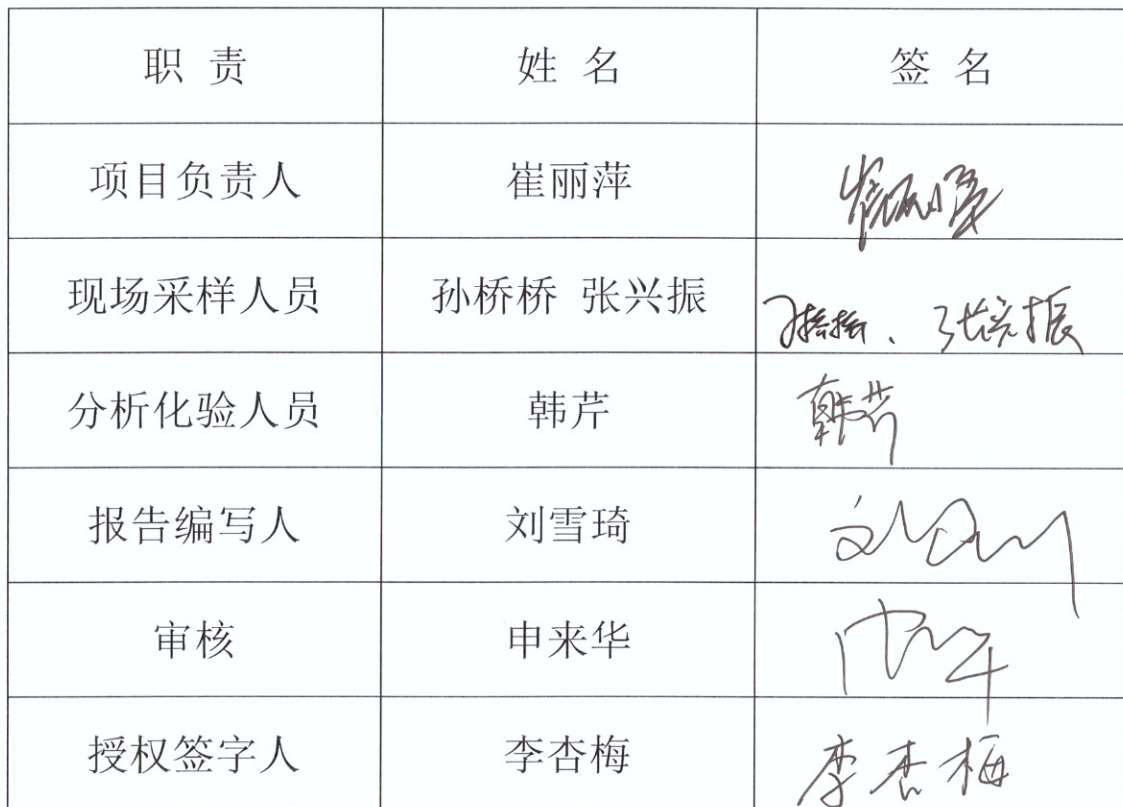 职 责 姓 名 签 名
项目负责人 崔丽萍 崔丽萍
现场采样人员 孙桥桥 张兴振 孙桥桥、张兴振
分析化验人员 韩芹 韩芹
报告编写人 刘雪琦
审核 申来华
授权签字人 李杏梅 李杏梅